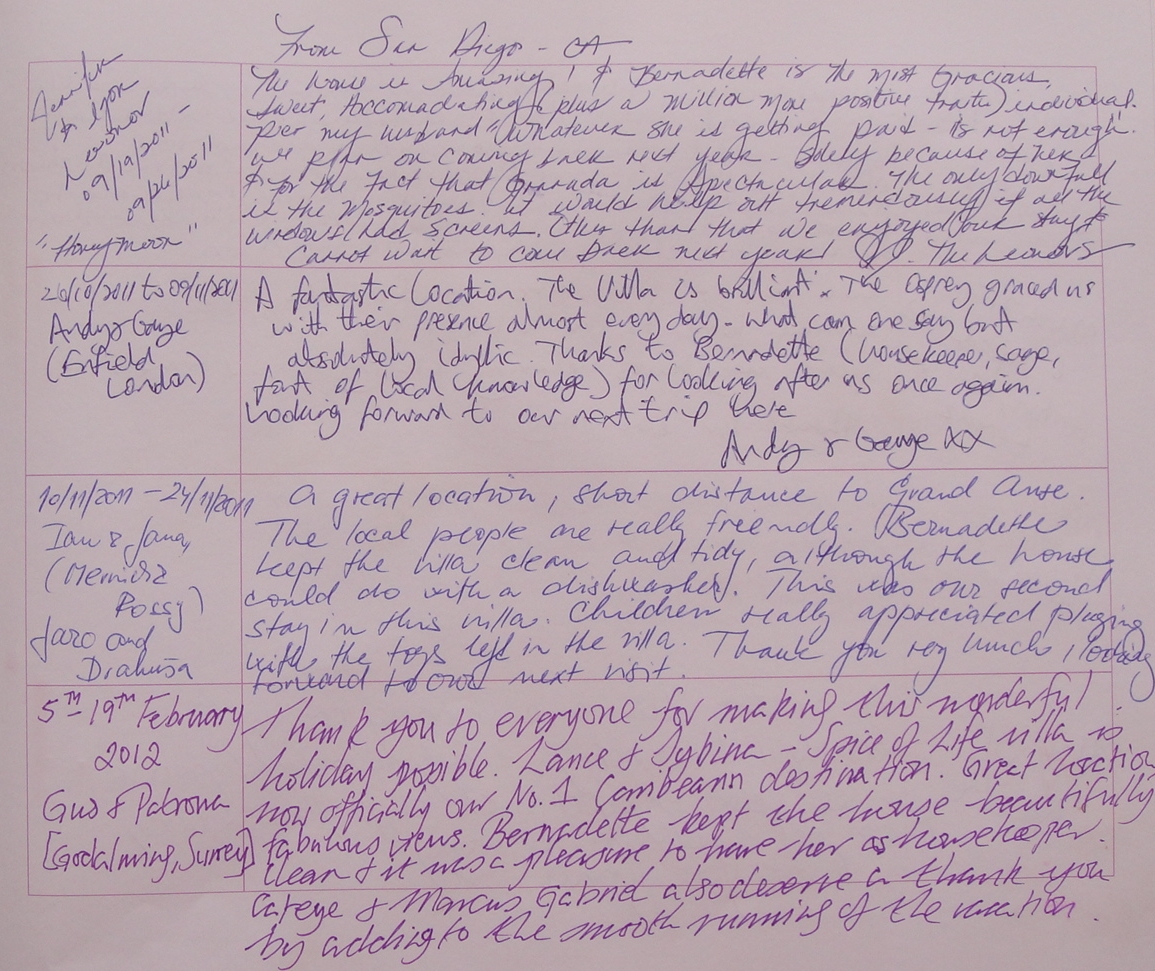 From San Diego - CA
Jennifer
& Lyon
Leonor
09/19/2011 -
09/26/2011
"Honeymoon"
The house is Amazing! & Bernadette is the most Gracious,
Sweet, Accomadating (plus a million more positive traits) individual.
Per my husband "Whatever she is getting paid - is not enough".
We plan on coming back next year - Solely because of her
& for the fact that Grenada is Spectacular. The only downfall
is the Mosquitoes. It would help out tremendously if all the
windows had screens. Other than that we enjoyed our stay &
Cannot wait to come back next year! The Leonors
20/10/2011 to 09/11/2011
Andy & Gaye
(Enfield
London)
A fantastic location. The Villa is brilliant. The Osprey graced us
with their presence almost every day - what can one say but
absolutely idyllic. Thanks to Bernadette (housekeeper, sage,
font of local knowledge) for looking after us once again.
Looking forward to our next trip here
Andy & Gaye XX
10/11/2011 - 24/11/2011
Ian & Jana,
Jaro and
A great location, short distance to Grand Anse.
The local people are really friendly. Bernadette
kept the villa clean and tidy, although the house
could do with a dishwasher! This was our second
stay in this villa. Children really appreciated playing
with the toys left in the villa. Thank you very much, looking
forward to our next visit.
5TH-19TH February
2012
Gus & Patrona
[Godalming, Surrey]
Thank you to everyone for making this wonderful
holiday possible. Lance & Sybina - Spice of Life villa is
now officially our No.1 Caribbeann destination. Great location
fabulous views. Bernadette kept the house beautifully
clean & it was a pleasure to have her as housekeeper.
Cateye & Marcus Gabriel also deserve a thank you
by adding to the smooth running of the vacation.